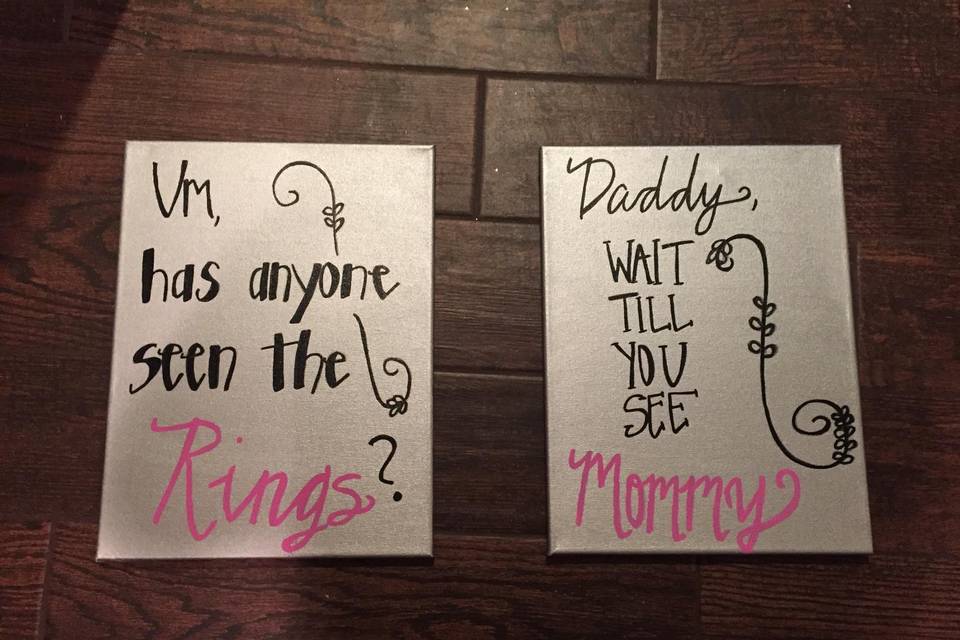 Um,
has anyone
seen the
Rings?
Daddy,
WAIT
TILL
YOU
SEE
Mommy